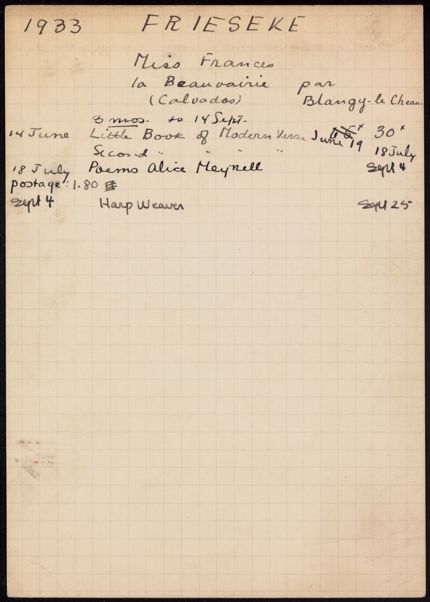 1933 FRIESEKE
Miss Frances
la Beauvairie par
(Calvados) Blangy-le Cheau.
3 mos. to 14 Sept.
14 June Little Book of Modern Verse June 19 30ˣ
Second " " " " 18 July
18 July Poems Alice Meynell Sept 4
postage: 1.80
Sept 4 Harp Weaver Sept 25